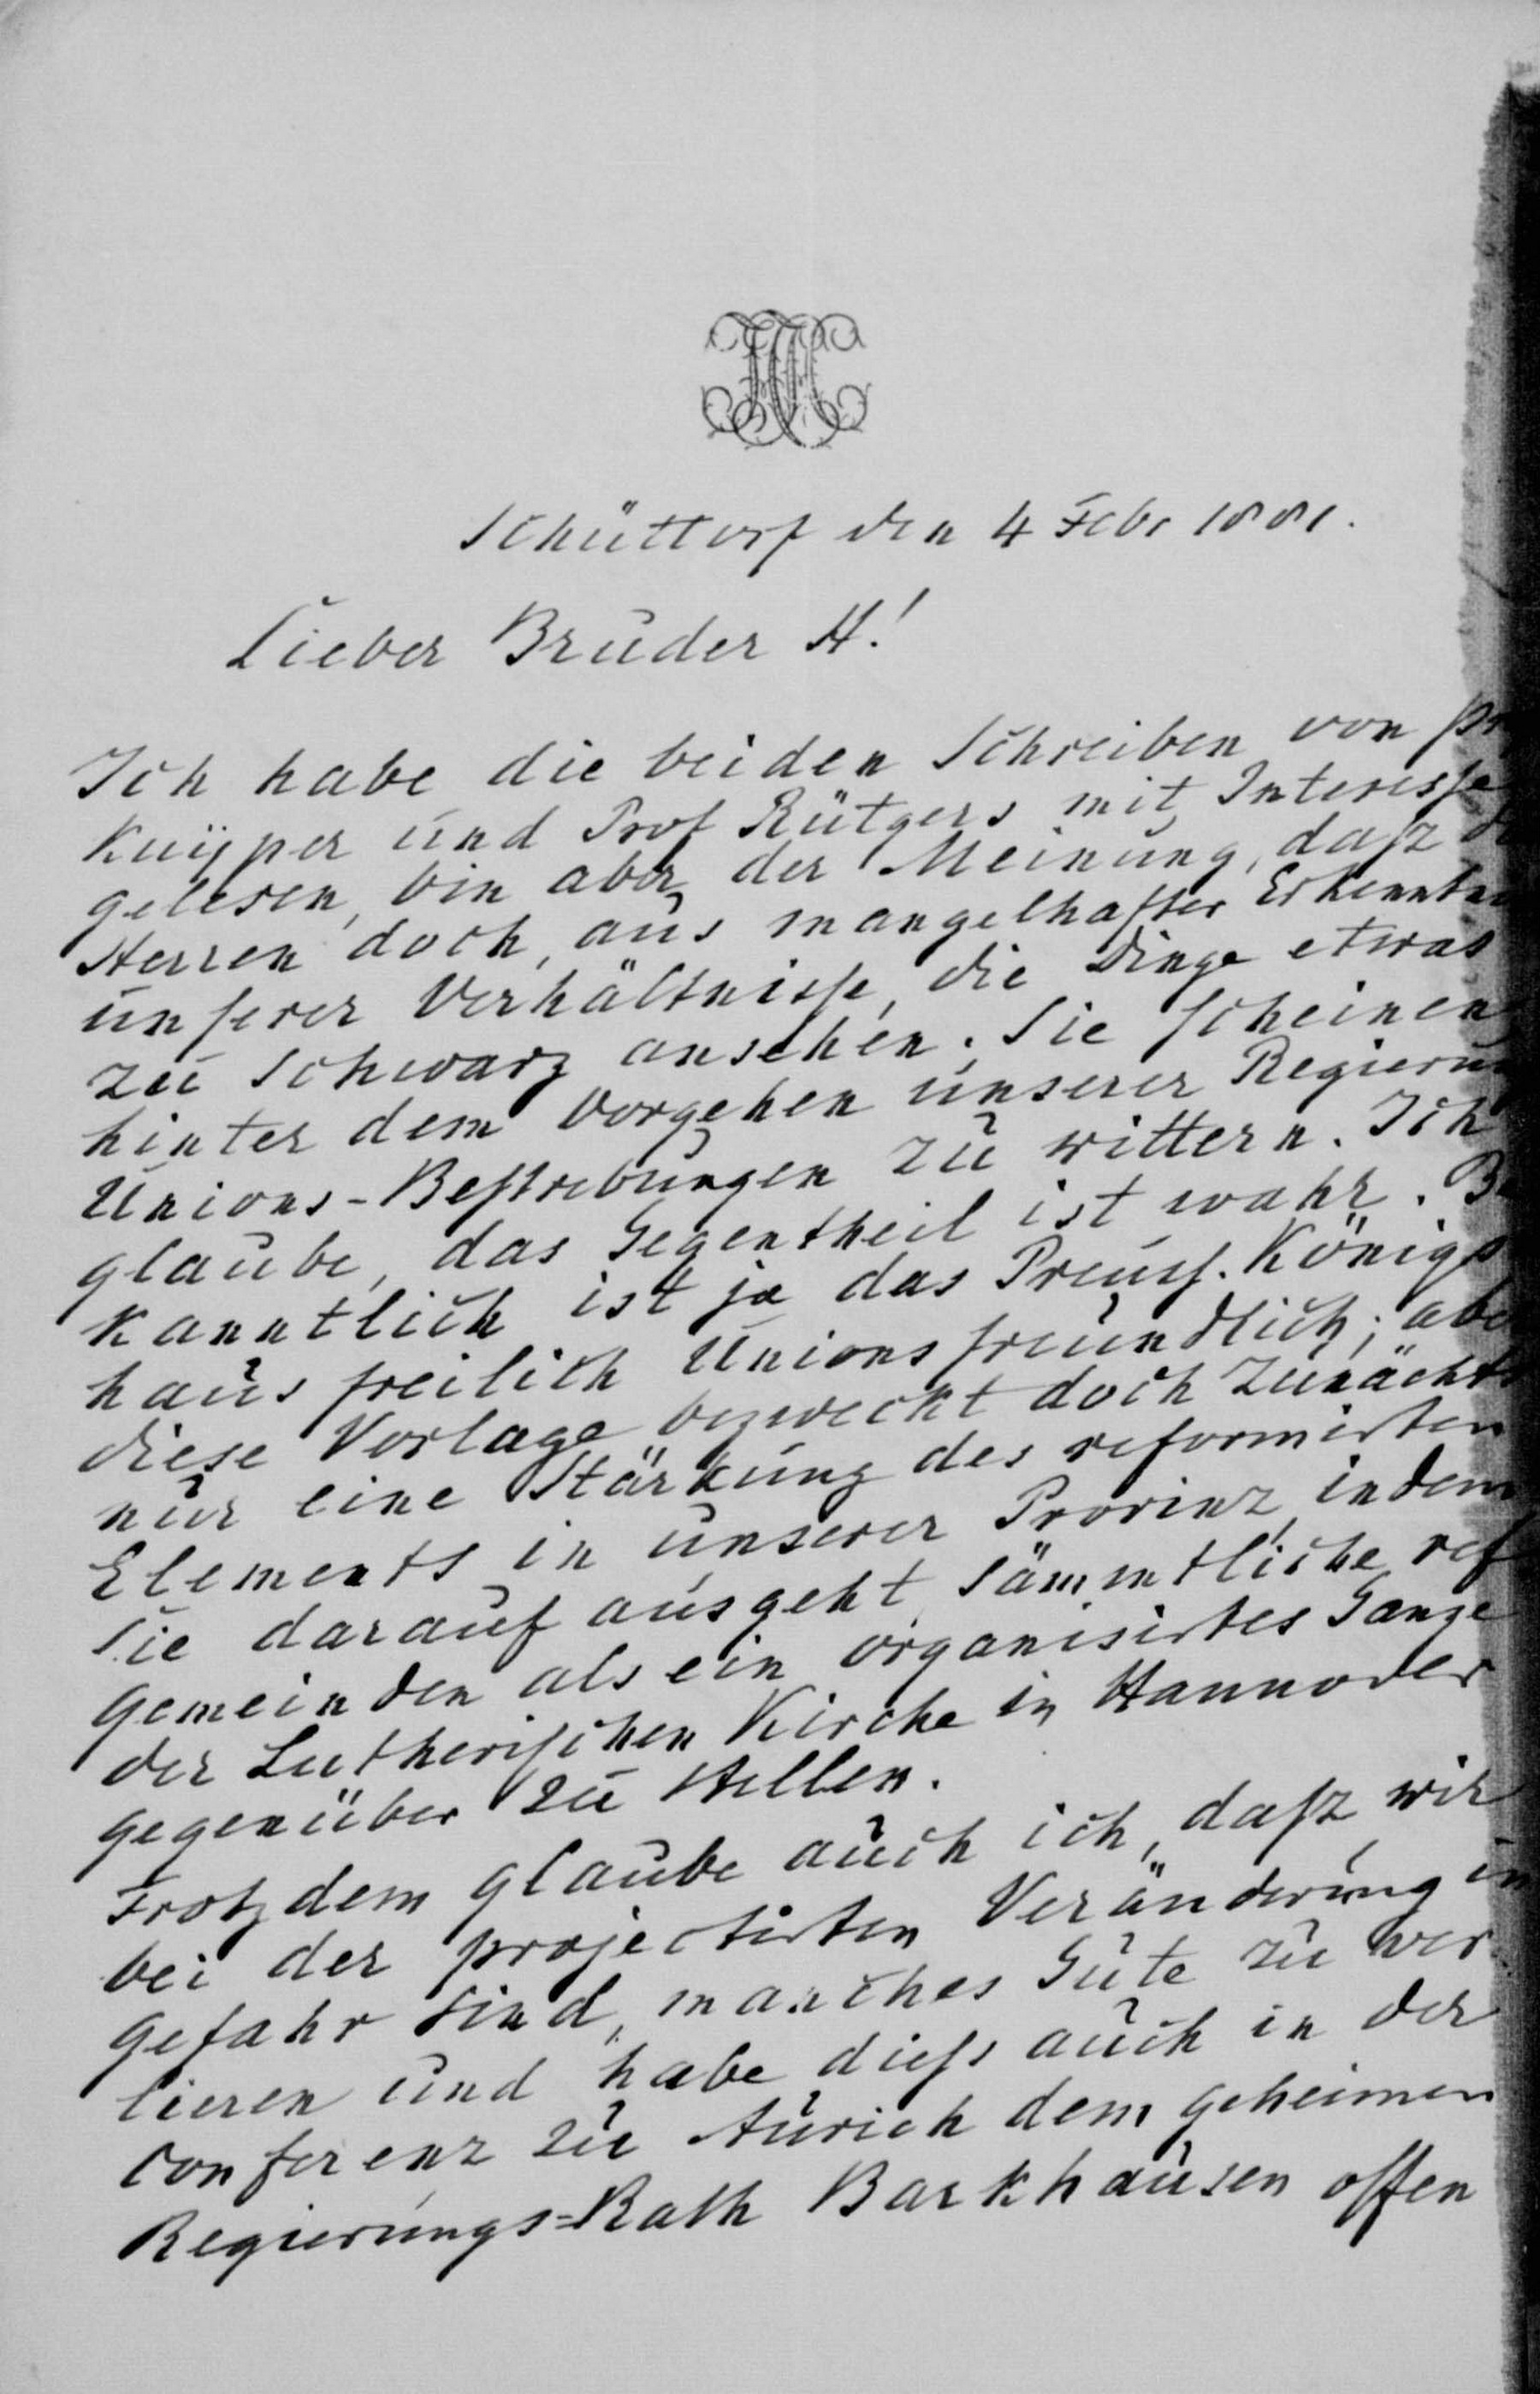 Schüttorf den 4 Febr 1881.
Lieber Bruder H!
Ich habe die beiden Schreiben von
Kuÿper und Prof Rütgers mit Interesse
gelesen, bin aber der Meinung, dasz
Herren doch, aus mangelhafter Erkenntn
unserer Verhältnisse, die Dinge etwas
zu schwarz ansehen. Sie scheinen
hinter dem Vorgehen unserer Regierun
Unions-Bestrebungen zu wittern. Ich
glaube, das Gegentheil ist wahr. Be
kanntlich ist ja das Preuss. Königs
haus freilich Unionsfreundlich; abe
diese Vorlage bezweckt doch zunächst
nur eine Stärkung des reformirten
Elements in unserer Provinz, indem
Sie darauf ausgeht, sämmtliche ref
Gemeinden als ein organisirtes Ganze
der Lutherischen Kirche in Hannover
gegenüber zu stellen.
Trotzdem glaube auch ich, dasz wir
bei der projectirten Veränderung in
Gefahr sind, manches Gute zu ver
lieren und habe diess auch in der
Conferenz zu Aurich dem geheimen
Regierungs-Rath Barkhausen offen